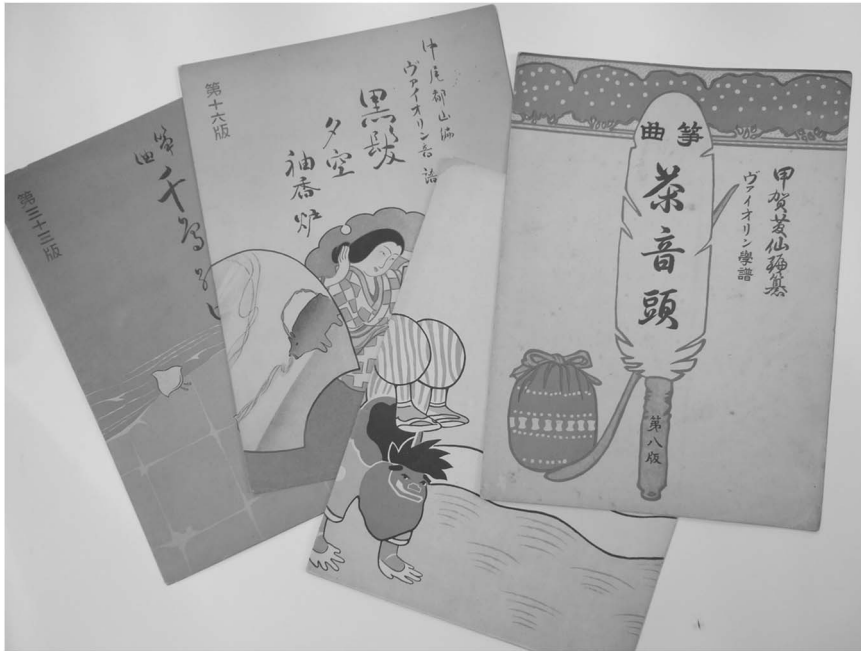 第三十三版
箏曲
千鳥の曲
第十六版
中尾都山編
ヴァイオリン音譜
黒髪
夕空
袖香炉
箏曲
茶音頭
第八版
甲賀夢仙編纂
ヴァイオリン學譜